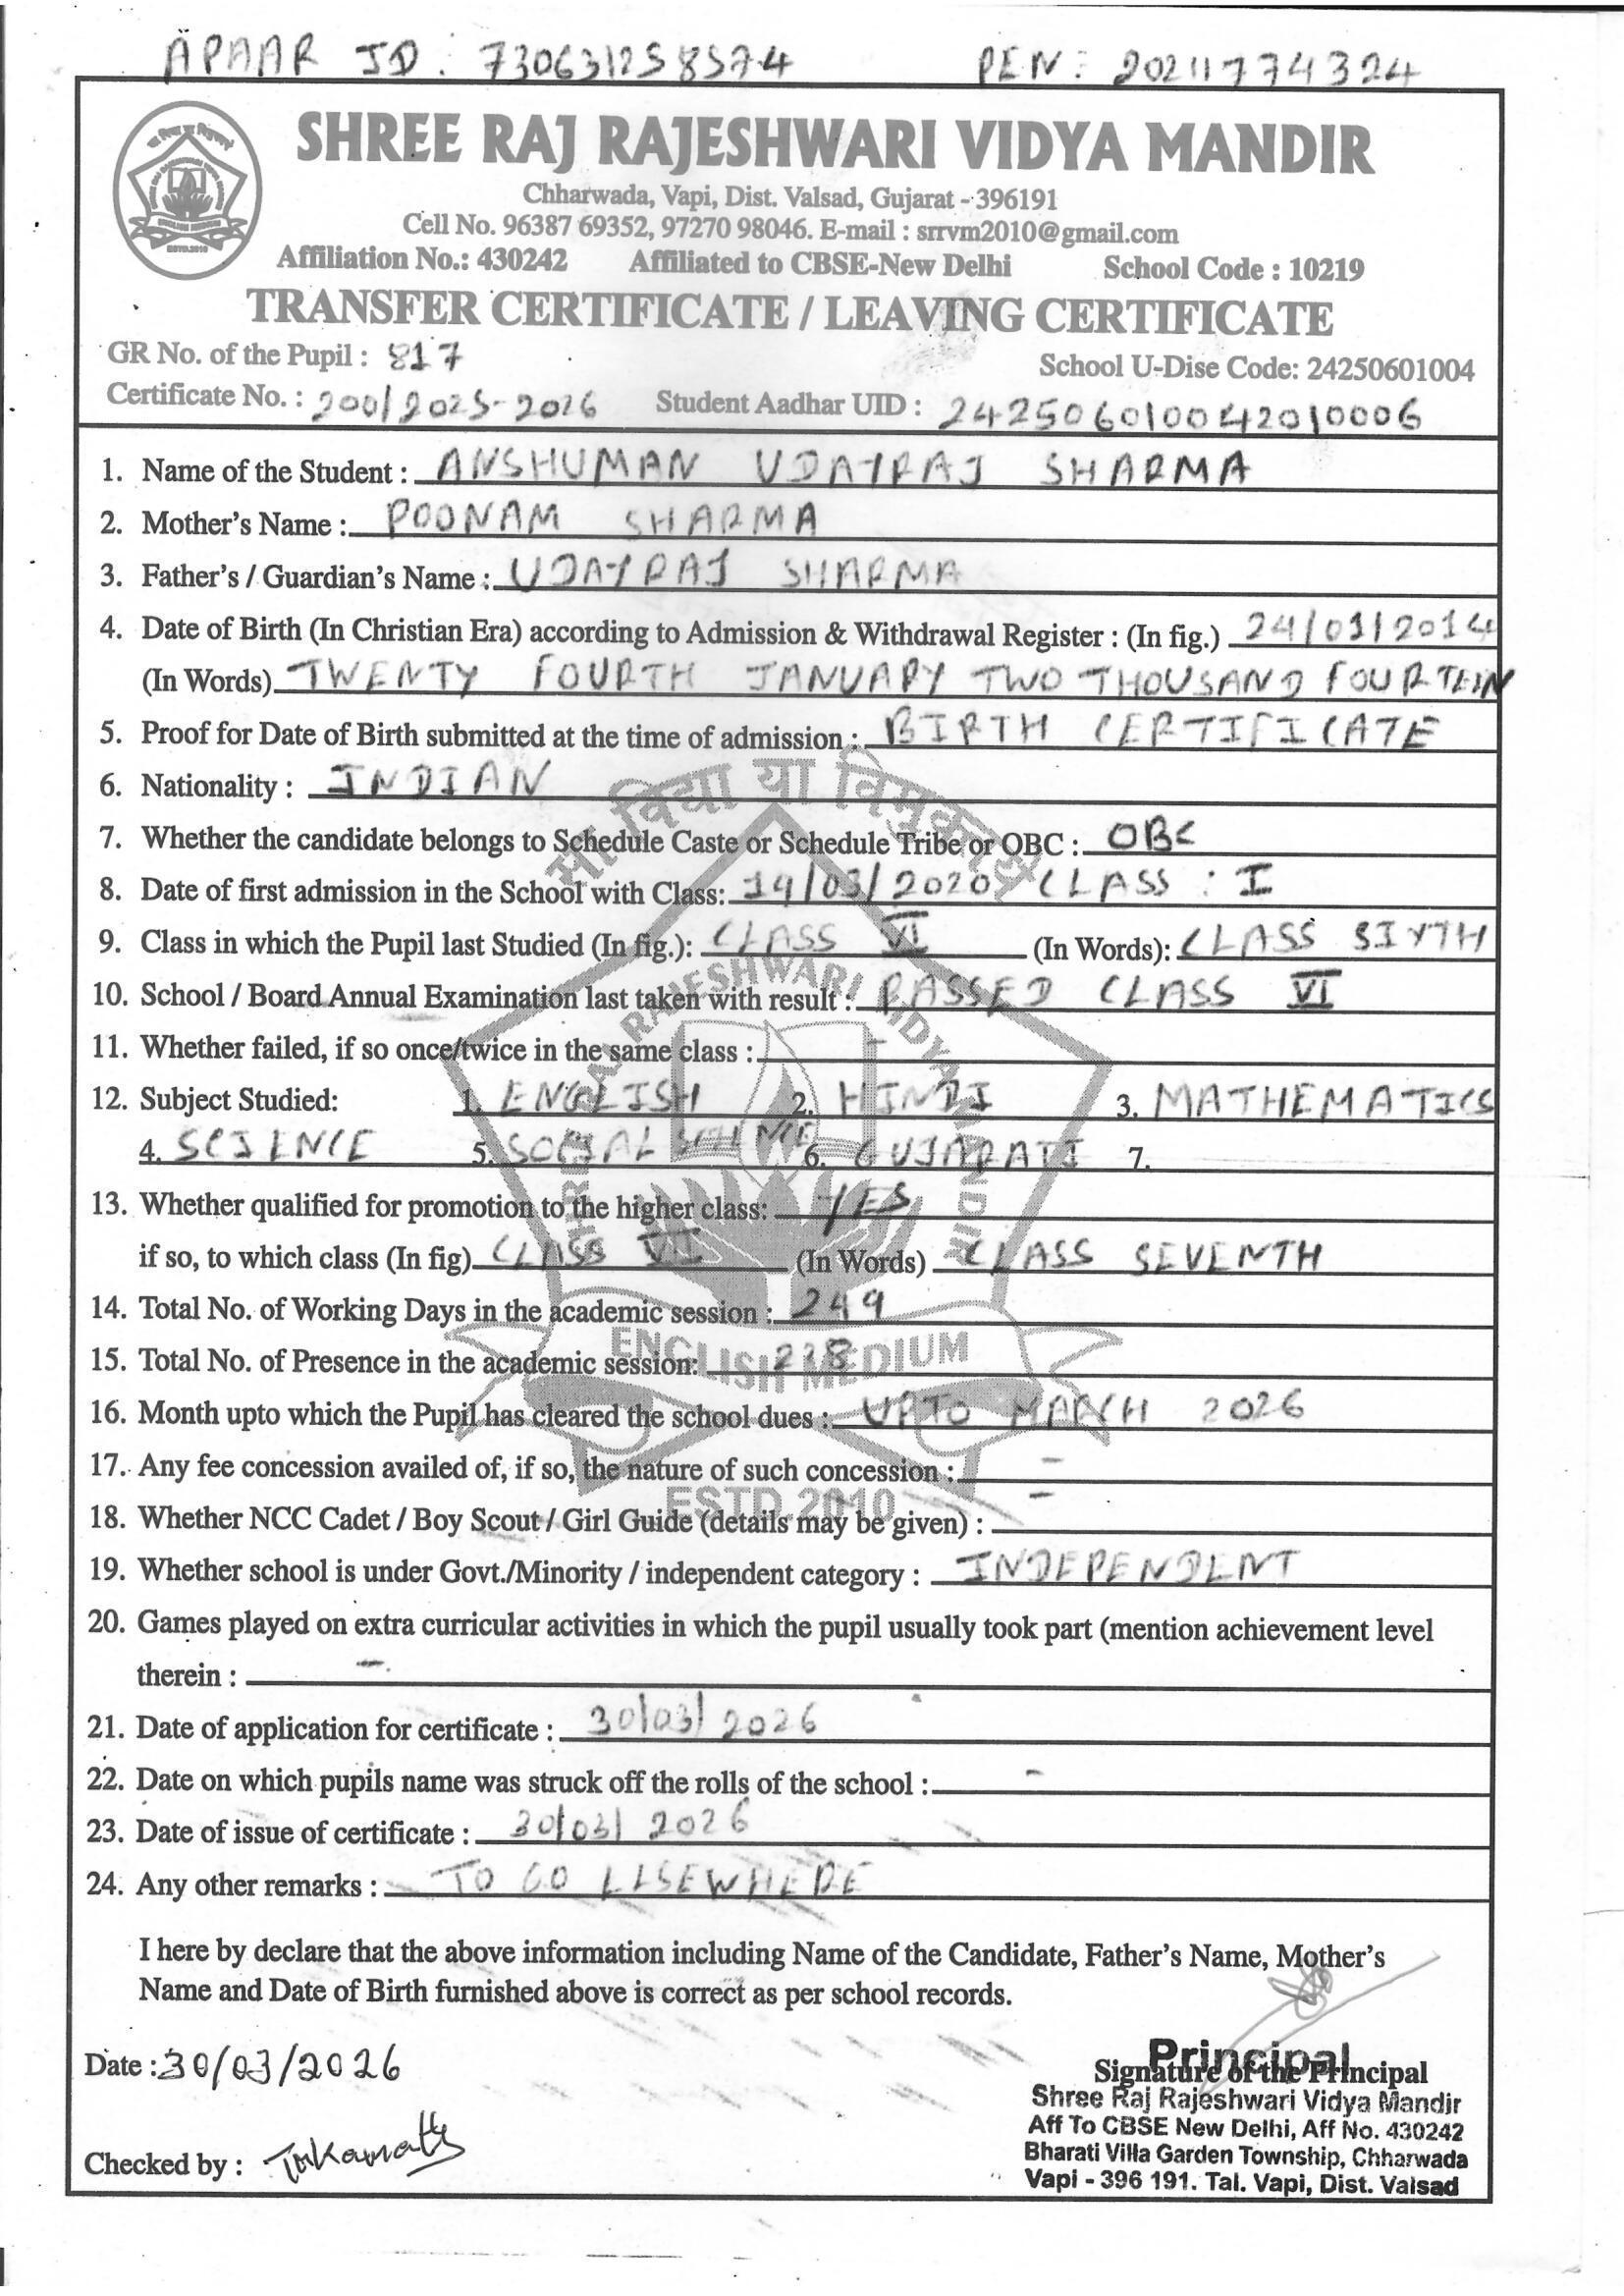 APAAR ID : 730631258574 PEN: 20211774324
SHREE RAJ RAJESHWARI VIDYA MANDIR
Chharwada, Vapi, Dist. Valsad, Gujarat - 396191
Cell No. 96387 69352, 97270 98046. E-mail : srrvm2010@gmail.com
Affiliation No.: 430242 Affiliated to CBSE-New Delhi School Code : 10219
TRANSFER CERTIFICATE / LEAVING CERTIFICATE
GR No. of the Pupil : 817
School U-Dise Code: 24250601004
Certificate No. : 200/2025-2026 Student Aadhar UID : 242506010042010006
1. Name of the Student : ANSHUMAN UDAYRAJ SHARMA
2. Mother's Name : POONAM SHARMA
3. Father's / Guardian's Name : UDAYRAJ SHARMA
4. Date of Birth (In Christian Era) according to Admission & Withdrawal Register : (In fig.) 24/01/2014
(In Words) TWENTY FOURTH JANUARY TWO THOUSAND FOURTEIN
5. Proof for Date of Birth submitted at the time of admission : BIRTH CERTIFICATE
6. Nationality : INDIAN
7. Whether the candidate belongs to Schedule Caste or Schedule Tribe or OBC : OBC
8. Date of first admission in the School with Class: 19/03/2020 CLASS : I
9. Class in which the Pupil last Studied (In fig.): CLASS VI (In Words): CLASS SIXTH
10. School / Board Annual Examination last taken with result : PASSED CLASS VI
11. Whether failed, if so once/twice in the same class : -
12. Subject Studied: 1. ENGLISH 2. HINDI 3. MATHEMATICS
4. SCIENCE 5. SOCIAL SCIENCE 6. GUJARATI 7.
13. Whether qualified for promotion to the higher class: YES
if so, to which class (In fig) CLASS VII (In Words) CLASS SEVENTH
14. Total No. of Working Days in the academic session : 249
15. Total No. of Presence in the academic session: 228
16. Month upto which the Pupil has cleared the school dues : UPTO MARCH 2026
17. Any fee concession availed of, if so, the nature of such concession : -
18. Whether NCC Cadet / Boy Scout / Girl Guide (details may be given) : -
19. Whether school is under Govt./Minority / independent category : INDEPENDENT
20. Games played on extra curricular activities in which the pupil usually took part (mention achievement level
therein : -
21. Date of application for certificate : 30/03/2026
22. Date on which pupils name was struck off the rolls of the school : -
23. Date of issue of certificate : 30/03/2026
24. Any other remarks : TO GO ELSEWHERE
I here by declare that the above information including Name of the Candidate, Father's Name, Mother's
Name and Date of Birth furnished above is correct as per school records.
Date : 30/03/2026
Principal
Signature of the Principal
Shree Raj Rajeshwari Vidya Mandir
Aff To CBSE New Delhi, Aff No. 430242
Bharati Villa Garden Township, Chharwada
Vapi - 396 191. Tal. Vapi, Dist. Valsad
Checked by :
सा विद्या या विमुक्तये
SHREE RAJ RAJESHWARI VIDYA MANDIR
ENGLISH MEDIUM
ESTD.2010